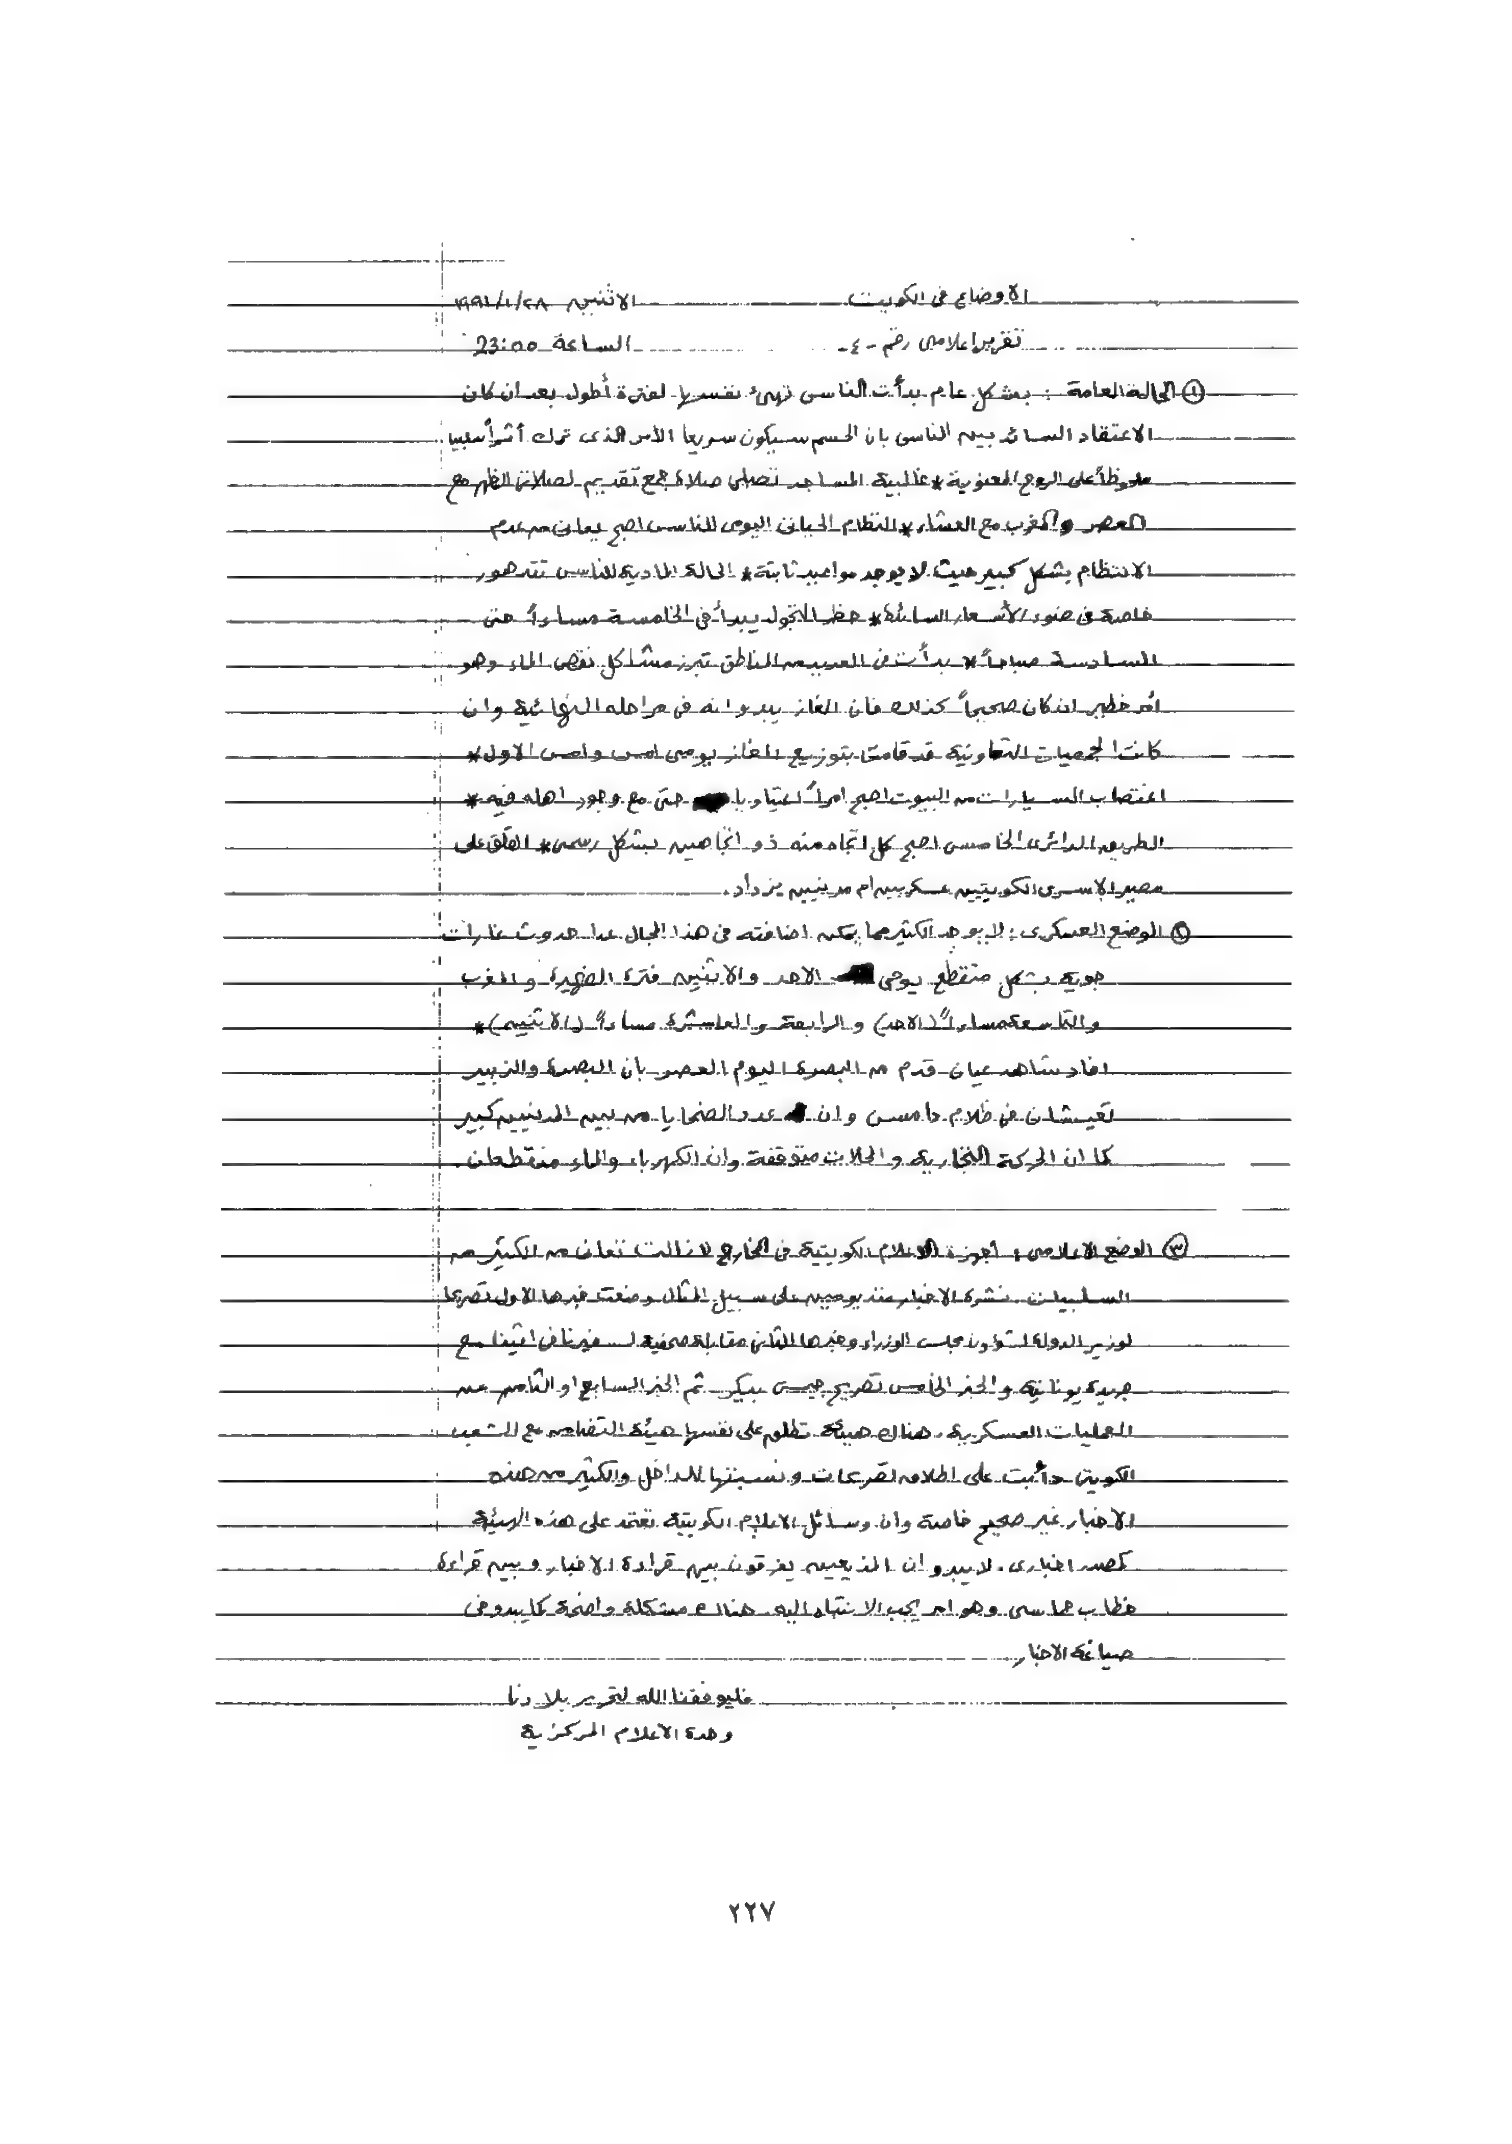 الاوضاع في الكويت الاثنين ١٩٩١/١/٢٨
تقرير اعلامي رقم -٤- الساعة 23:00
① الحالة العامة : بشكل عام بدأت الناس تهيئ نفسها لفترة أطول بعد ان كان
الاعتقاد السائد بين الناس بان الحسم سيكون سريعا الأمر الذي ترك أثراً سلبيا
ملحوظاً على الروح المعنوية * غالبية المساجد تصلي صلاة جمع تقديم لصلاتي الظهر مع
العصر والمغرب مع العشاء * النظام الحياتي اليومي للناس اصبح يعاني من عدم
الانتظام بشكل كبير حيث لا يوجد مواعيد ثابتة * الحالة المادية للناس تتدهور
خاصة في ضوء الأسعار السائدة * حظر التجول يبدأ في الخامسة مساءاً حتى
السادسة صباحاً * بدأت في العديد من المناطق تبرز مشاكل نقص الماء وهو
أمر خطير ان كان صحيحاً كذلك فان الغاز يبدو انه في مراحله النهائية وان
كانت الجمعيات التعاونية قد قامت بتوزيع الغاز يومي امس وامس الاول *
اغتصاب السيارات من البيوت اصبح امراً اعتياديا حتى مع وجود اهله فيه *
الطريق الدائري الخامس اصبح كل اتجاه منه ذو اتجاهين بشكل رسمي * القلق على
مصير الاسرى الكويتيين عسكريين ام مدنيين يزداد .
② الوضع العسكري : لا يوجد الكثير مما يمكن اضافته في هذا المجال عدا حدوث غارات
جوية بشكل متقطع يومي الاحد والاثنين فترة الظهيرة والمغرب
والتاسعة مساءاً (الاحد) والرابعة والعاشرة مساءاً (الاثنين) *
افاد شاهد عيان قدم من البصرة اليوم العصر بأن البصرة والزبير
تعيشان في ظلام دامس وان عدد الضحايا من بين المدنيين كبير
كما ان الحركة التجارية والمحلات متوقفة وان الكهرباء والماء منقطعان .
③ الوضع الاعلامي : أجهزة الاعلام الكويتية في الخارج لا زالت تعاني من الكثير من
السلبيات . نشرة الاخبار منذ يومين على سبيل المثال وضعت خبرها الاول تصريحا
لوزير الدولة لشؤون مجلس الوزراء وخبرها الثاني مقابلة صحفية لسفيرنا في اثينا مع
جريدة يونانية والخبر الخامس تصريح جيمس بيكر ثم الخبر السابع او الثامن عن
العمليات العسكرية . هناك هيئة تطلق على نفسها هيئة التضامن مع الشعب
الكويتي دأبت على اطلاق تصريحات ونسبتها للداخل والكثير من هذه
الاخبار غير صحيح خاصة وان وسائل الاعلام الكويتية تعتمد على هذه الهيئة
كمصدر اخباري . لا يبدو ان المذيعين يفرقون بين قراءة الاخبار وبين قراءة
خطاب حماسي وهو امر يجب الانتباه اليه . هناك مشكلة واضحة كما يبدو في
صياغة الاخبار
فليوفقنا الله لتحرير بلادنا
وحدة الاعلام المركزية
٢٢٧